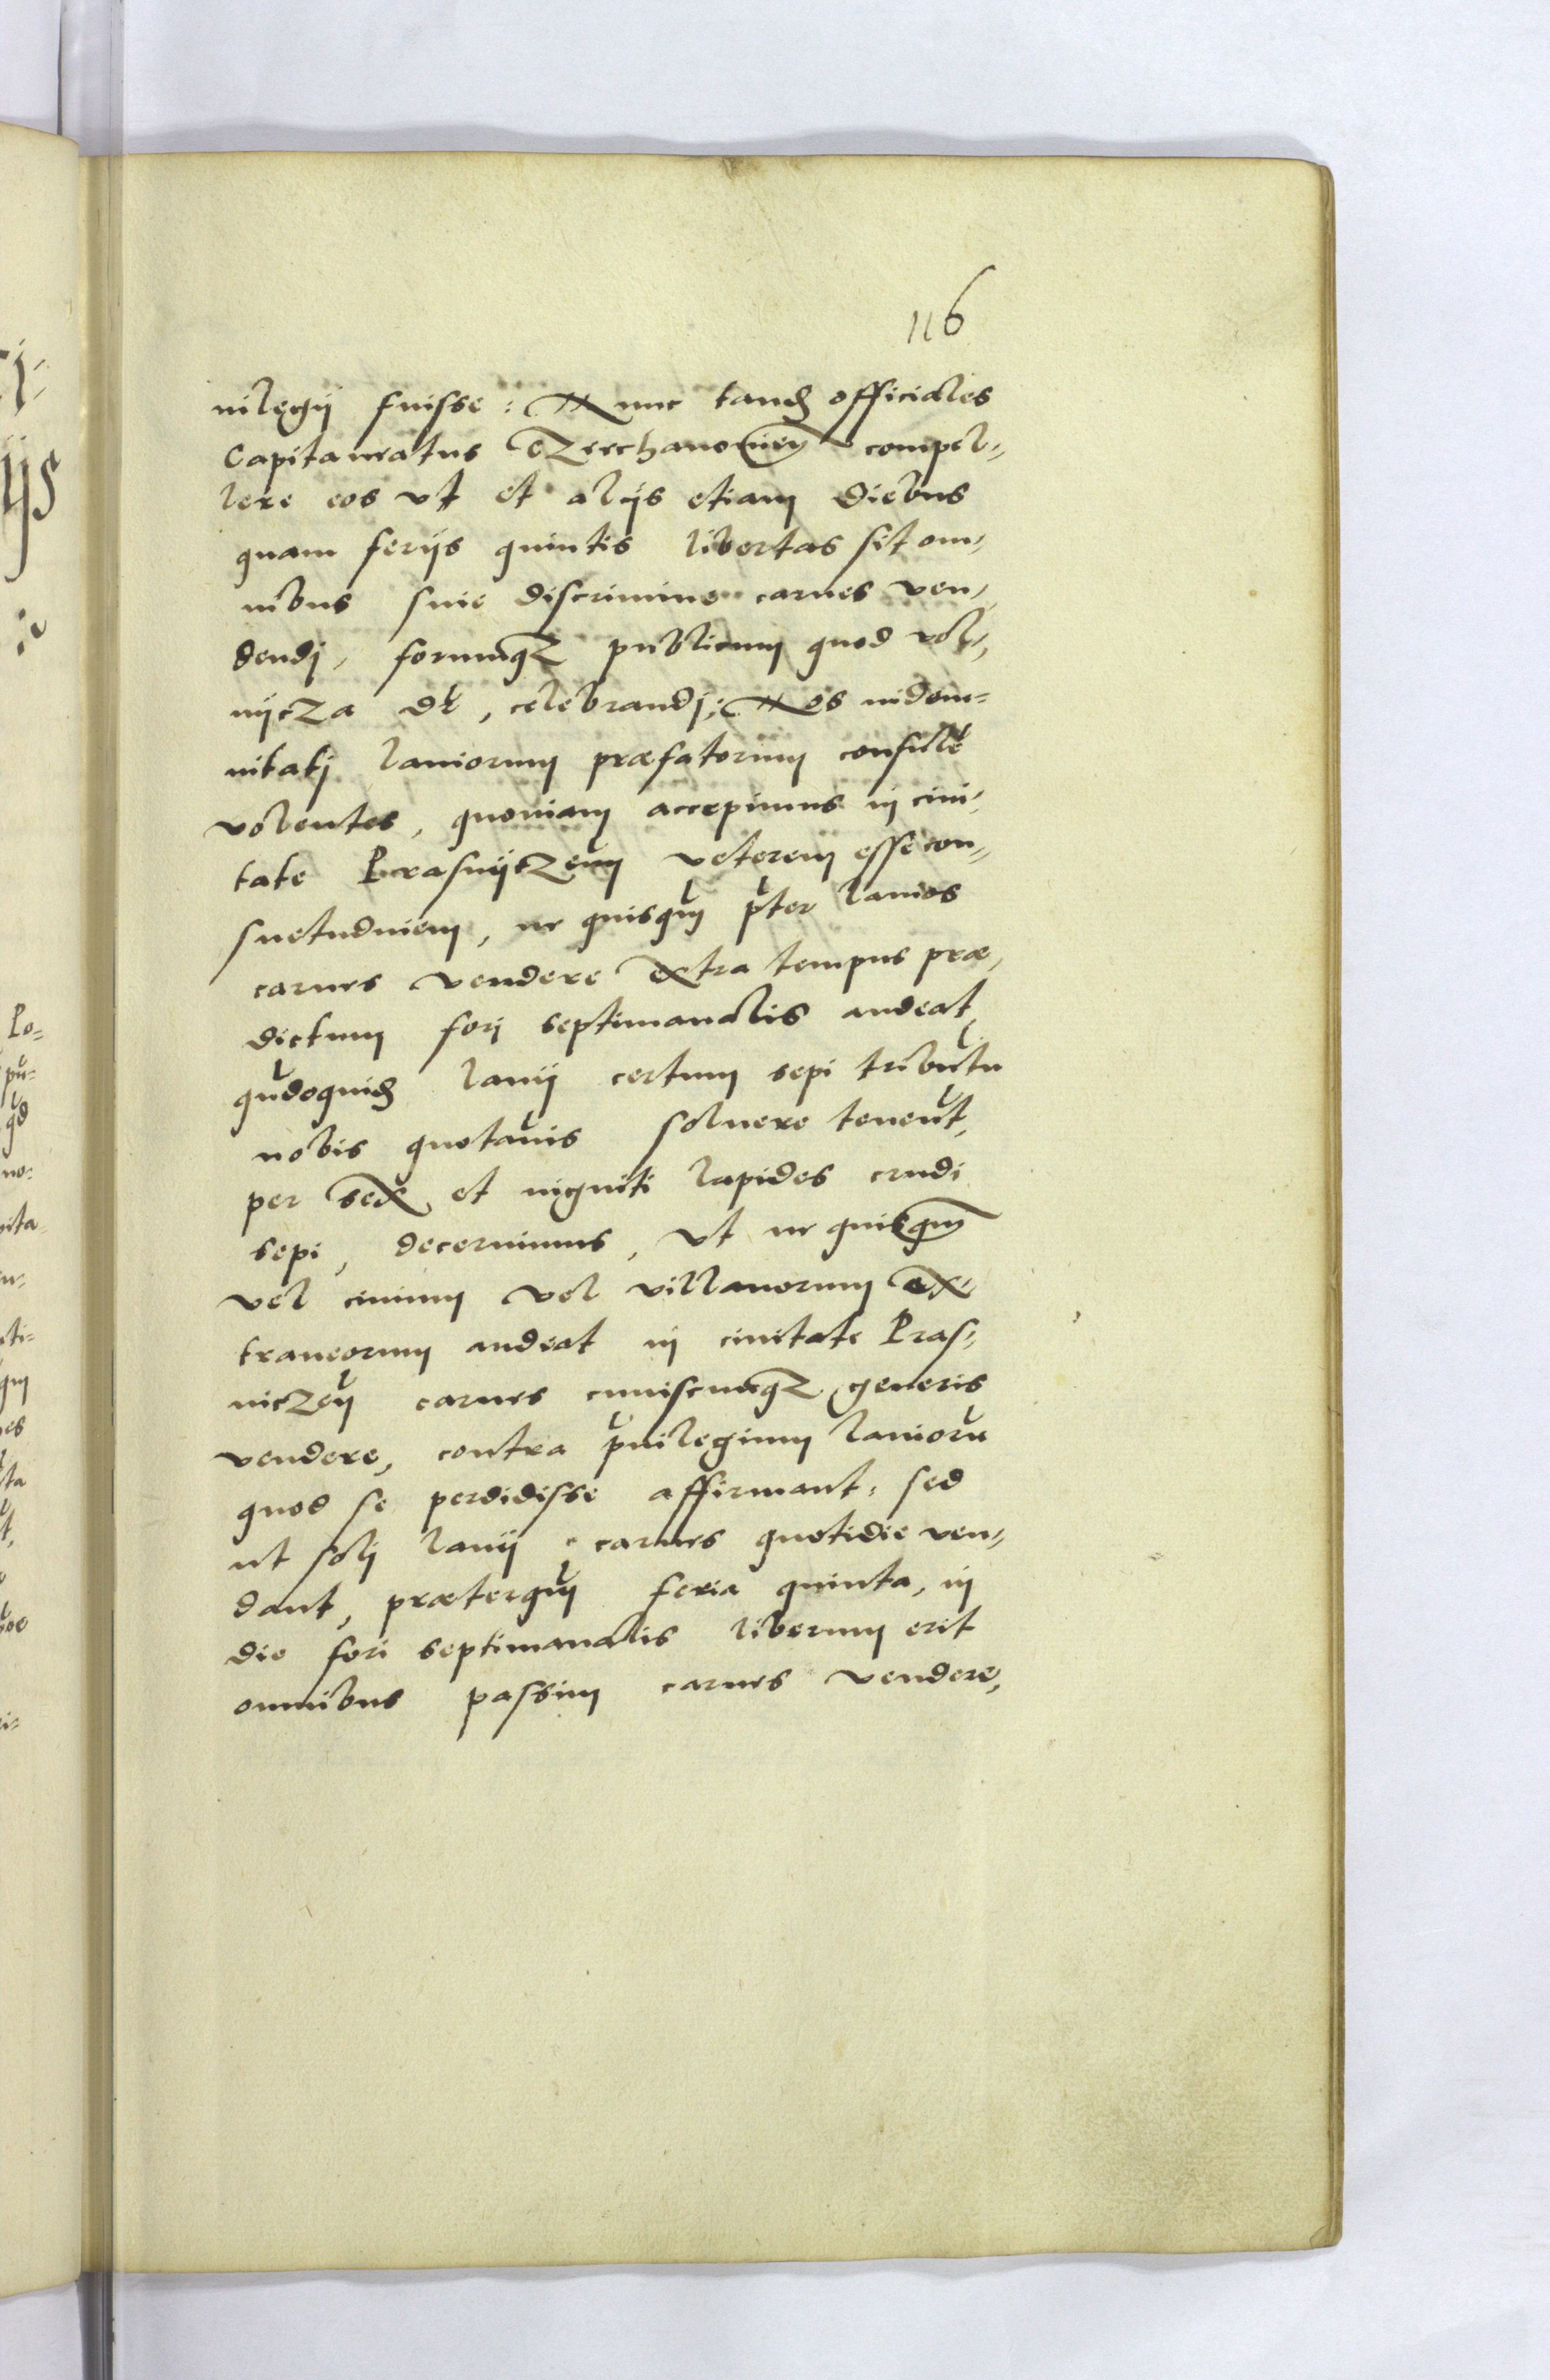 116
uilegij fuisse: Nunc tandē officiales
Capitaneatus Czechanouień compel-
lere eos vt et alijs etiam diebus
quam ferijs quintis libertas sit om-
nibus sine discrimine carnes ven-
dendj, forumqz publicum quod vol-
nijcza dr̄, celebrandj; Nos indem-
nitatj laniorum præfatorum consulē
volentes, quoniam accepimus in ciui-
tate Prasnijczeń veterem esse con-
suetudinem, ne quisqūm p̄ter lanios
carnes vendere extra tempus præ-
dictum forj septimanalis audeat,
qūdoquidē lanij certum sepi tributū
nobis quotānis soluere tenent̄,
per sex et uiginti lapides crudi
sepi, decernimus, vt ne quisqm̄
vel ciuium vel villanorum ex-
traneorum audeat in ciuitate Pras-
niczeń carnes cuiuscunqz generis
vendere, contra p̄uilegium laniorū
quod se perdidisse affirmant: sed
ut solj lanij carnes quotidie ven-
dant, præterqūm feria quinta, in
die fori septimanalis liberum erit
omnibus passim carnes vendere,